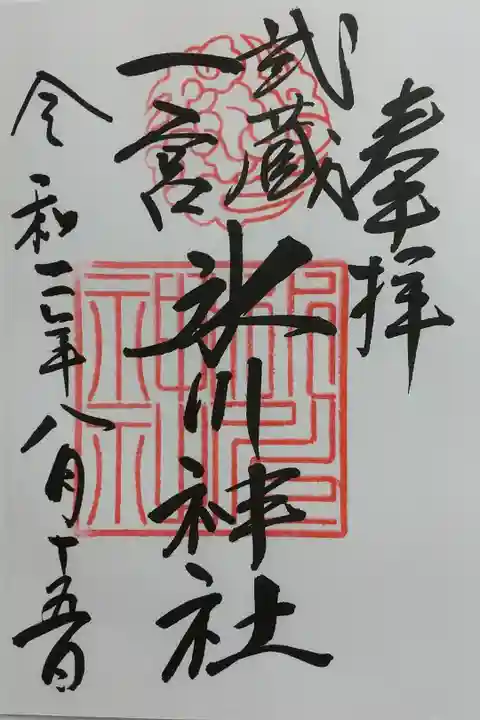 奉拝
武蔵
一宮
氷川神社
令和三年八月十五日